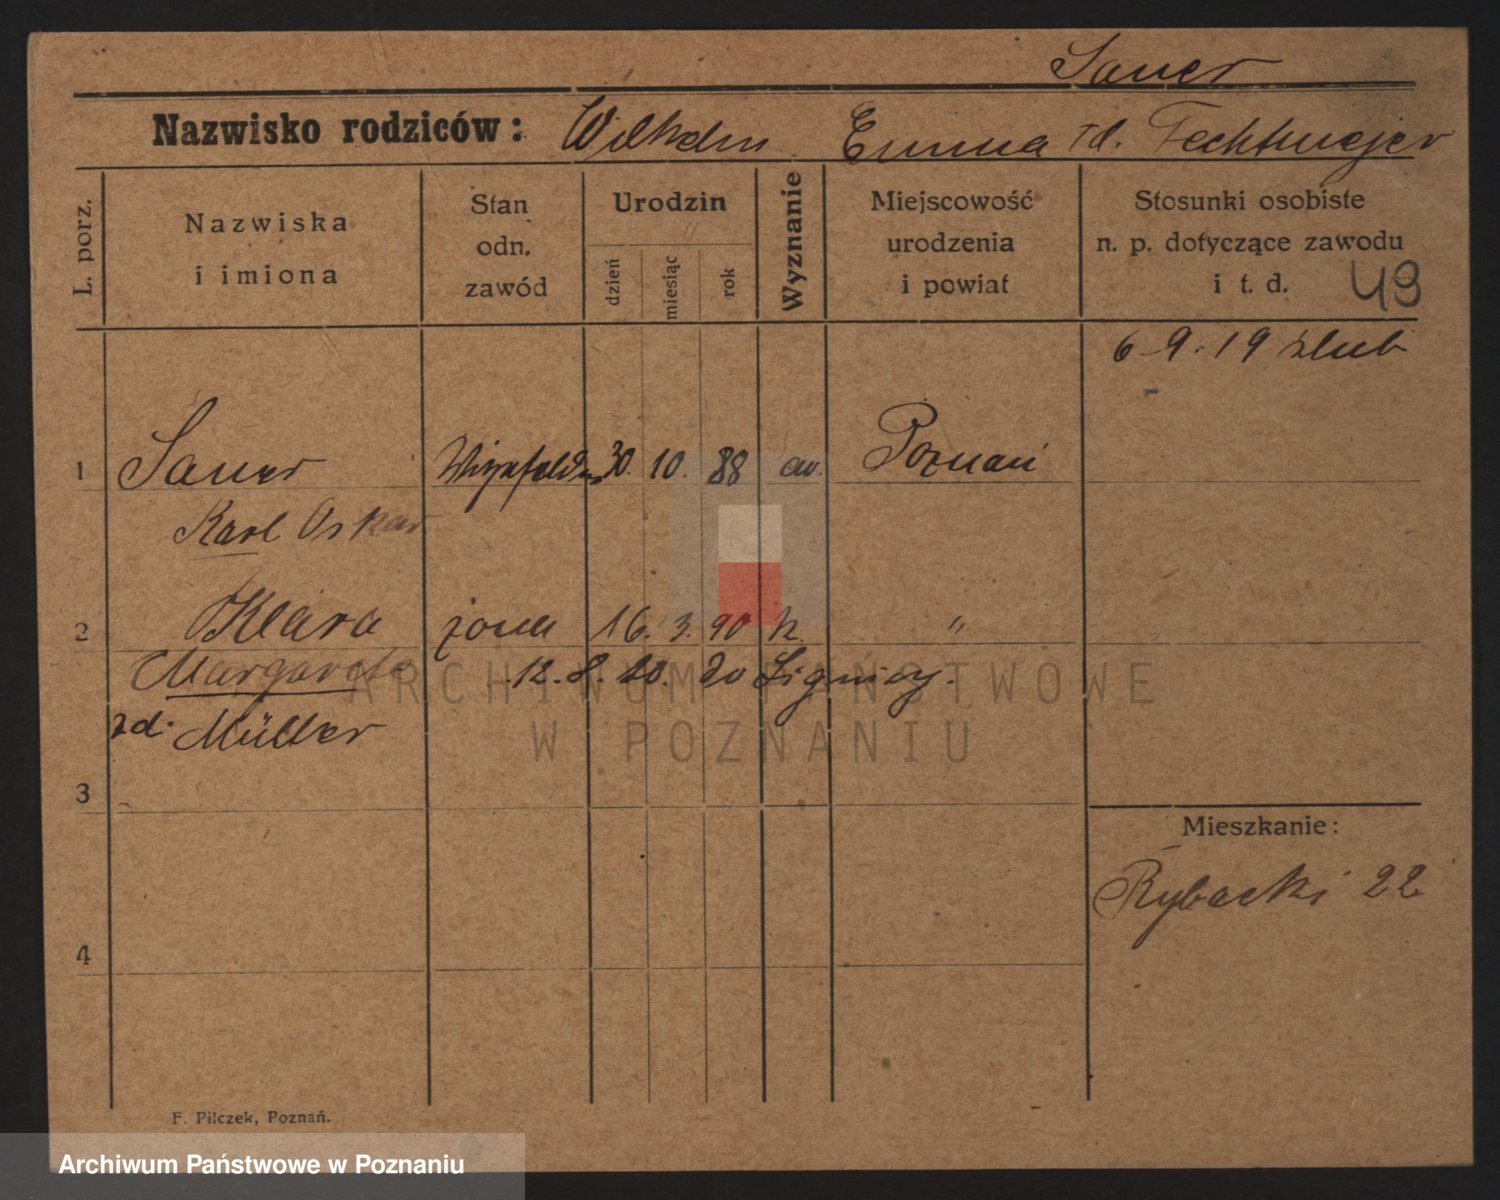 Sauer
Nazwisko rodziców: Wilhelm Emma zd. Fechtmejer
L. porz.
Nazwiska i imiona
Stan odn. zawód
Urodzin
dzień
miesiąc
rok
Wyznanie
Miejscowość urodzenia i powiat
Stosunki osobiste n. p. dotyczące zawodu i t. d.
49
6 9. 19 ślub
1 Sauer 30. 10. 88 ew. Poznań
Karl Oskar
2 Klara żona 16. 3. 90 k. "
Margarete 12. 8. 20 Lignicy.
zd. Müller
3
Mieszkanie:
Rybacki 22
4
F. Pilczek, Poznań.
ARCHIWUM PAŃSTWOWE
W POZNANIU
Archiwum Państwowe w Poznaniu